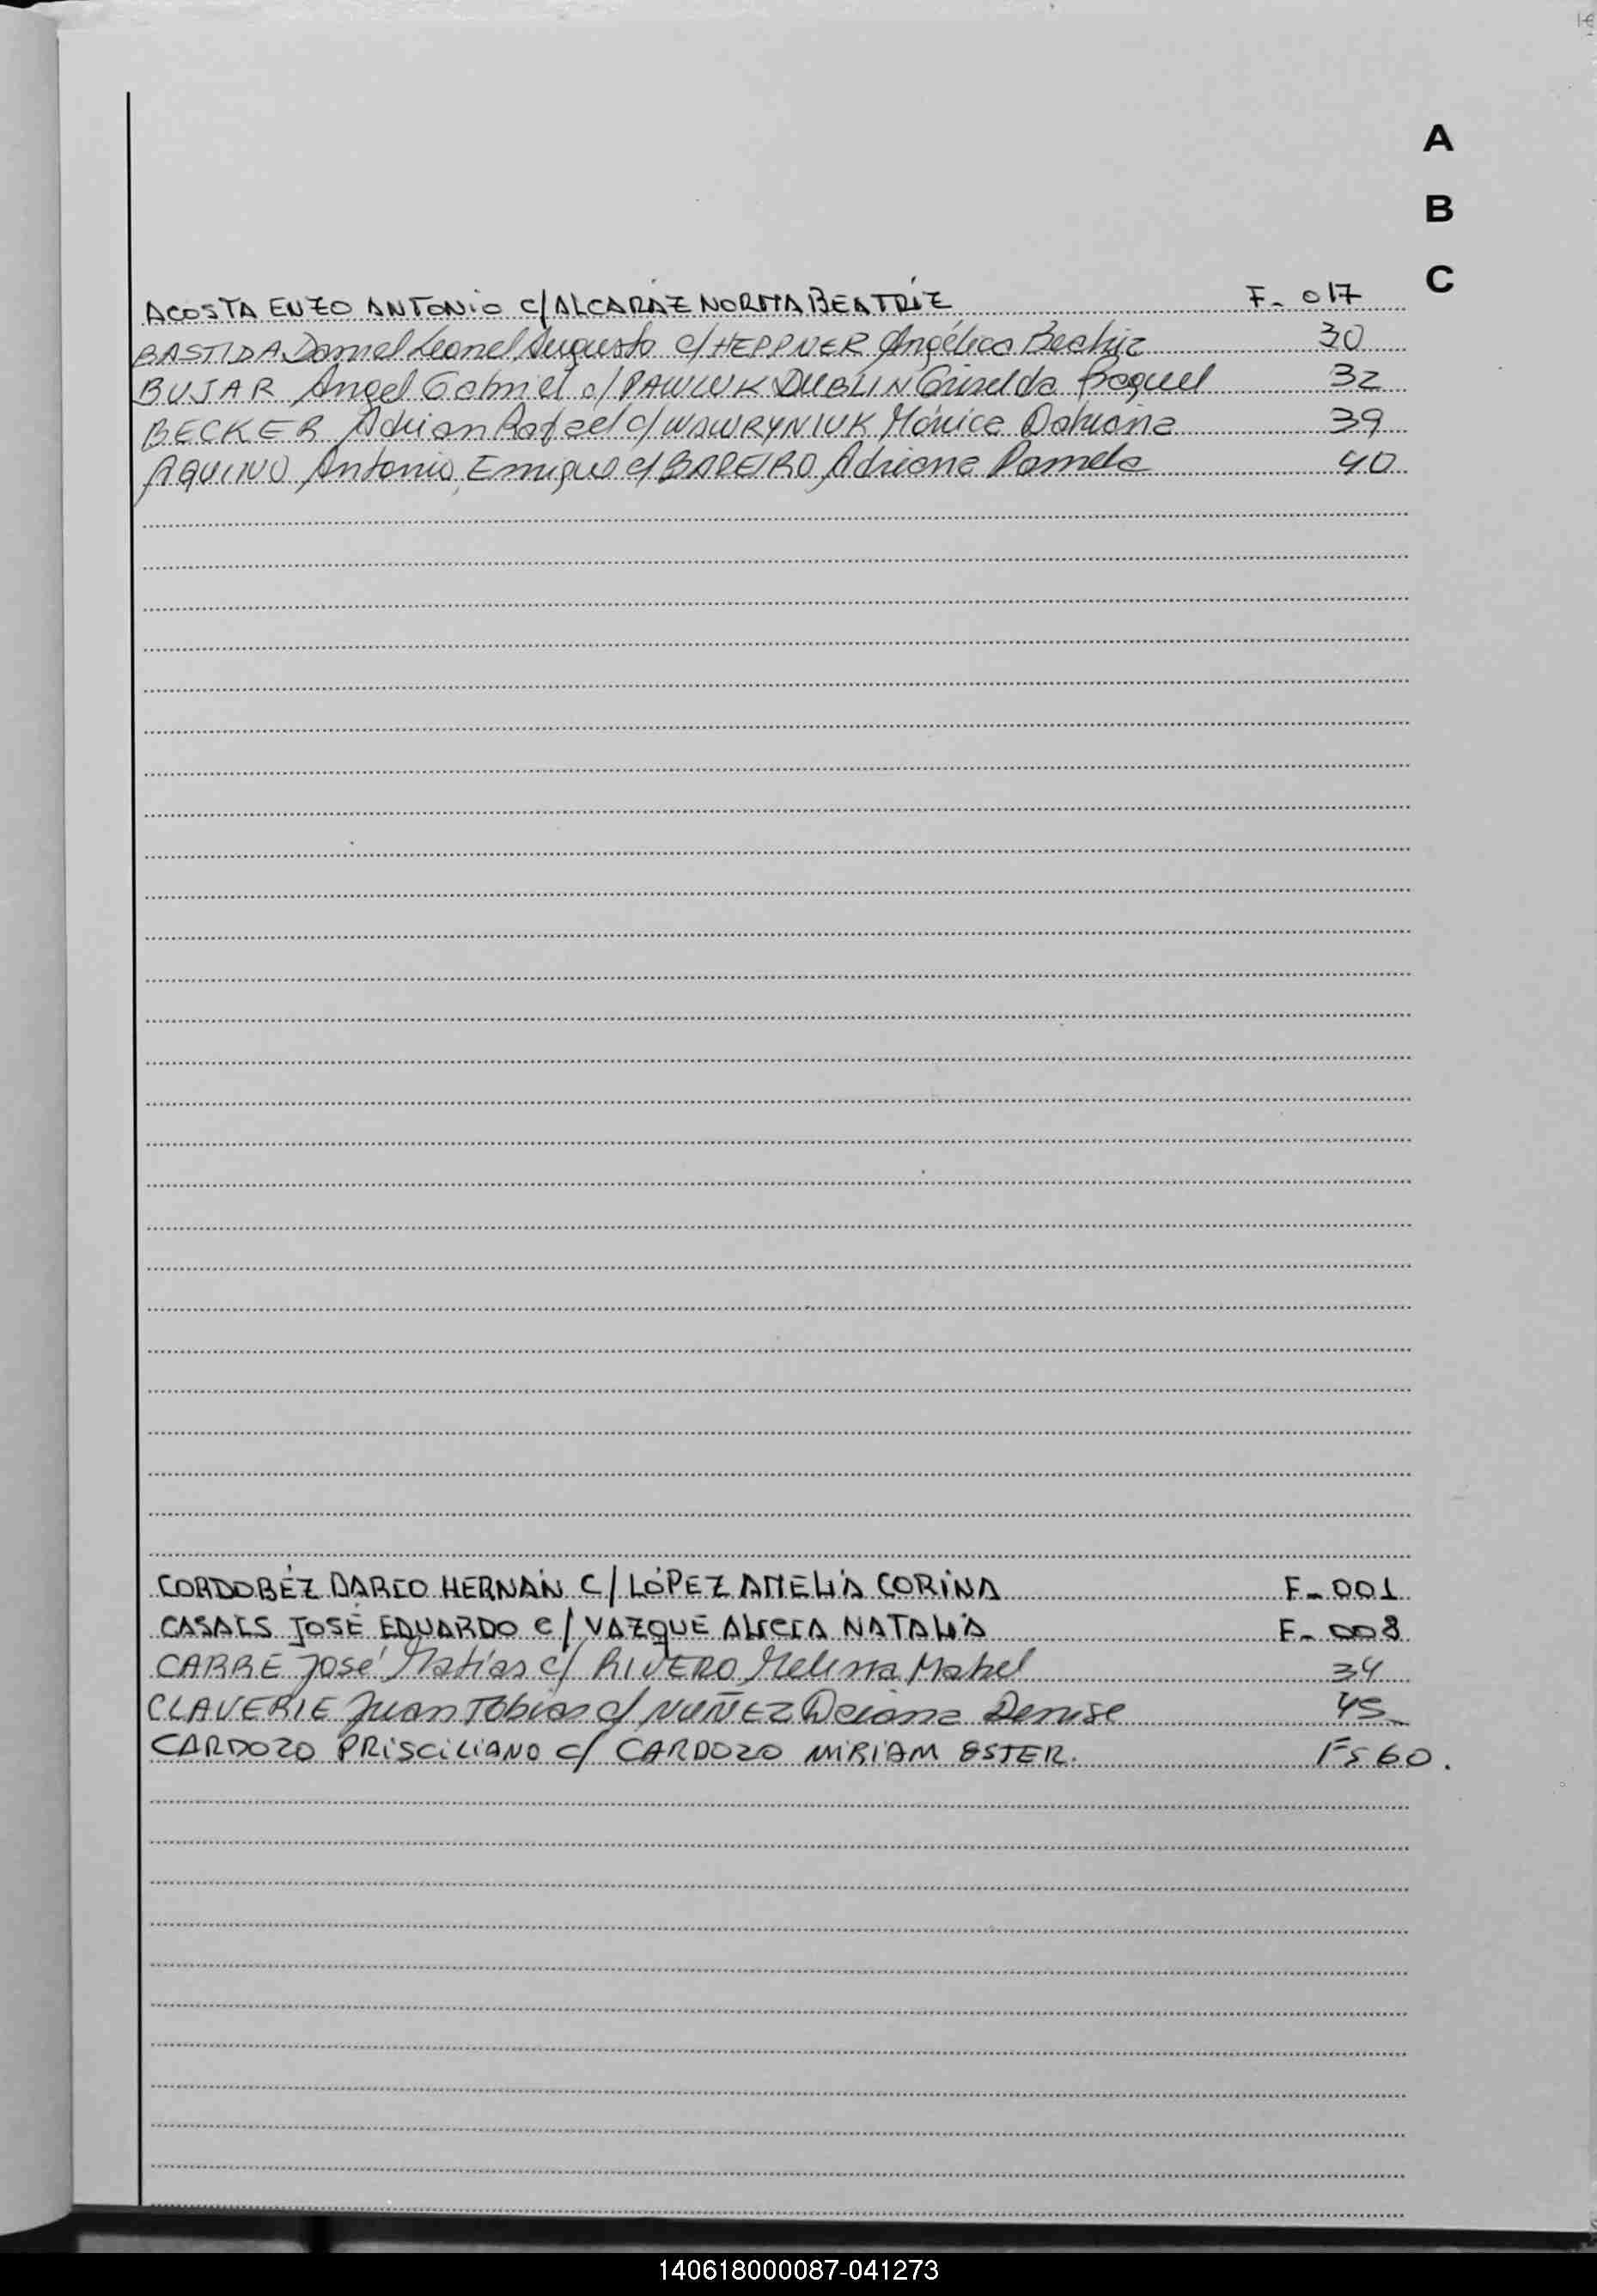 A
B
C
ACOSTA ENZO ANTONIO C/ ALCARÁZ NORMA BEATRÍZ F- 017
BASTIDA Daniel Leonel Augusto c/ HEPPNER Angélica Beatriz 30
BUJAR Angel Gabriel c/ PAWLUK DUBLIN Griselda Raquel 32
BECKER Adrian Rafael c/ WAWRYNIUK Mónica Dahiana 39
AQUINO Antonio Enrique c/ BAREIRO Adriana Pamela 40
CORDOBÉZ DARIO HERNÁN C/ LÓPEZ AMELIA CORINA F-001
CASALS JOSÉ EDUARDO C/ VAZQUE ALICIA NATALIA F-008
CARRE José Matías c/ RIVERO Melina Mabel 34
CLAVERIE Juan Tobias c/ NUÑEZ Daiana Denise 45
CARDOZO PRISCILIANO c/ CARDOZO MIRIAM ESTER. Fs 60.
140618000087-041273